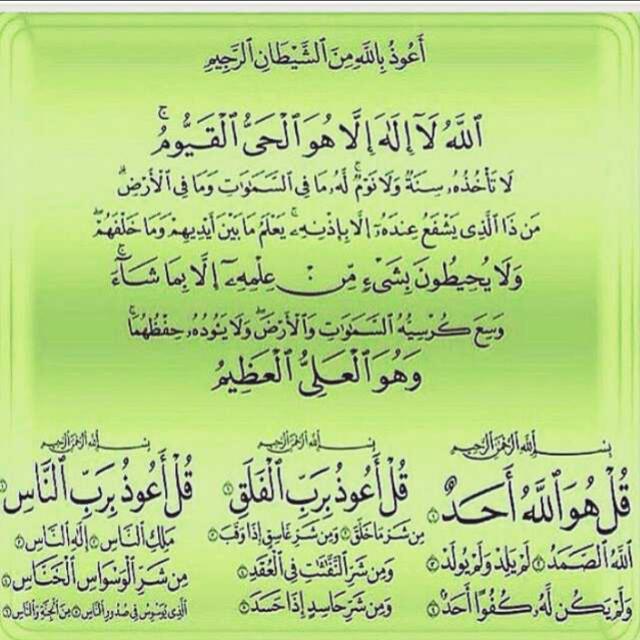 أَعُوذُ بِاللَّهِ مِنَ ٱلشَّيْطَانِ ٱلرَّجِيمِ
ٱللَّهُ لَآ إِلَٰهَ إِلَّا هُوَ ٱلْحَيُّ ٱلْقَيُّومُ ۚ
لَا تَأْخُذُهُۥ سِنَةٌ وَلَا نَوْمٌ ۚ لَّهُۥ مَا فِي ٱلسَّمَٰوَٰتِ وَمَا فِي ٱلْأَرْضِ ۗ
مَن ذَا ٱلَّذِي يَشْفَعُ عِندَهُۥٓ إِلَّا بِإِذْنِهِۦ ۚ يَعْلَمُ مَا بَيْنَ أَيْدِيهِمْ وَمَا خَلْفَهُمْ ۖ
وَلَا يُحِيطُونَ بِشَيْءٍ مِّنْ عِلْمِهِۦٓ إِلَّا بِمَا شَآءَ ۚ
وَسِعَ كُرْسِيُّهُ ٱلسَّمَٰوَٰتِ وَٱلْأَرْضَ ۖ وَلَا يَـُٔودُهُۥ حِفْظُهُمَا ۚ
وَهُوَ ٱلْعَلِيُّ ٱلْعَظِيمُ
بِسْمِ ٱللَّهِ ٱلرَّحْمَٰنِ ٱلرَّحِيمِ
قُلْ هُوَ ٱللَّهُ أَحَدٌ ۝١
ٱللَّهُ ٱلصَّمَدُ ۝٢ لَمْ يَلِدْ وَلَمْ يُولَدْ ۝٣
وَلَمْ يَكُن لَّهُۥ كُفُوًا أَحَدٌۢ ۝٤
بِسْمِ ٱللَّهِ ٱلرَّحْمَٰنِ ٱلرَّحِيمِ
قُلْ أَعُوذُ بِرَبِّ ٱلْفَلَقِ ۝١
مِن شَرِّ مَا خَلَقَ ۝٢ وَمِن شَرِّ غَاسِقٍ إِذَا وَقَبَ ۝٣
وَمِن شَرِّ ٱلنَّفَّٰثَٰتِ فِي ٱلْعُقَدِ ۝٤
وَمِن شَرِّ حَاسِدٍ إِذَا حَسَدَ ۝٥
بِسْمِ ٱللَّهِ ٱلرَّحْمَٰنِ ٱلرَّحِيمِ
قُلْ أَعُوذُ بِرَبِّ ٱلنَّاسِ ۝١
مَلِكِ ٱلنَّاسِ ۝٢ إِلَٰهِ ٱلنَّاسِ ۝٣
مِن شَرِّ ٱلْوَسْوَاسِ ٱلْخَنَّاسِ ۝٤
ٱلَّذِي يُوَسْوِسُ فِي صُدُورِ ٱلنَّاسِ ۝٥ مِنَ ٱلْجِنَّةِ وَٱلنَّاسِ ۝٦